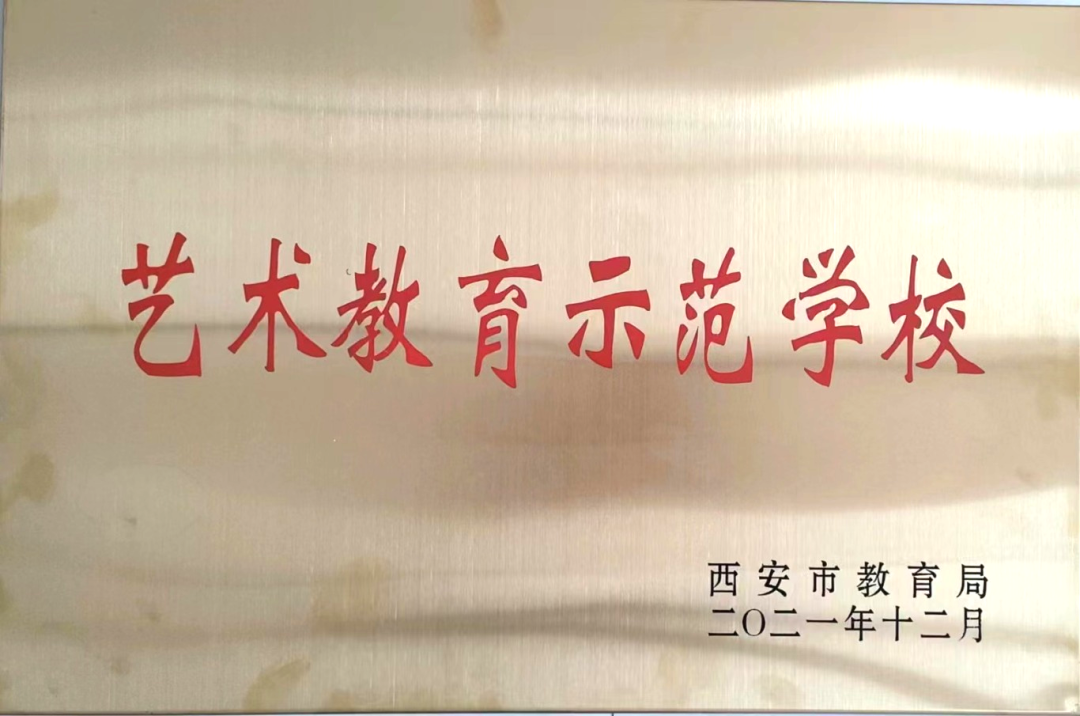 艺术教育示范学校
西安市教育局
二〇二一年十二月